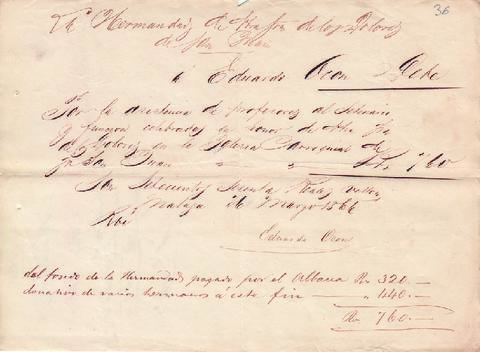 36
La Hermandad de Ntra Sra de los Dolores
de San Juan
á Eduardo Ocon Debe
Por la asistencia de profesores al Setenario
y funcion celebrados en honor de dha Sra
de los Dolores en la Iglesia Parroquial de
Sn Juan " " " Rs 760
Son Setecientos Sesenta Reales vellon
Malaga 26 Marzo 1866
Rbí
Eduardo Ocon
del fondo de la Hermandad pagado por el Albacea Rs 320.—
donativo de varios hermanos á este fin — " 440.—
Rs 760.—